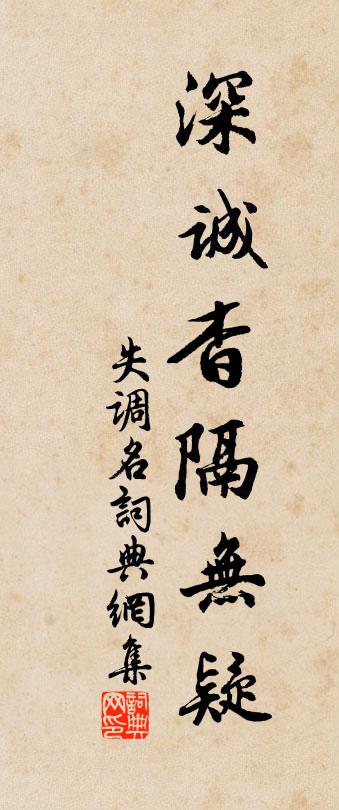 深誠杳隔無疑
失调名詞典網集
詞典网印